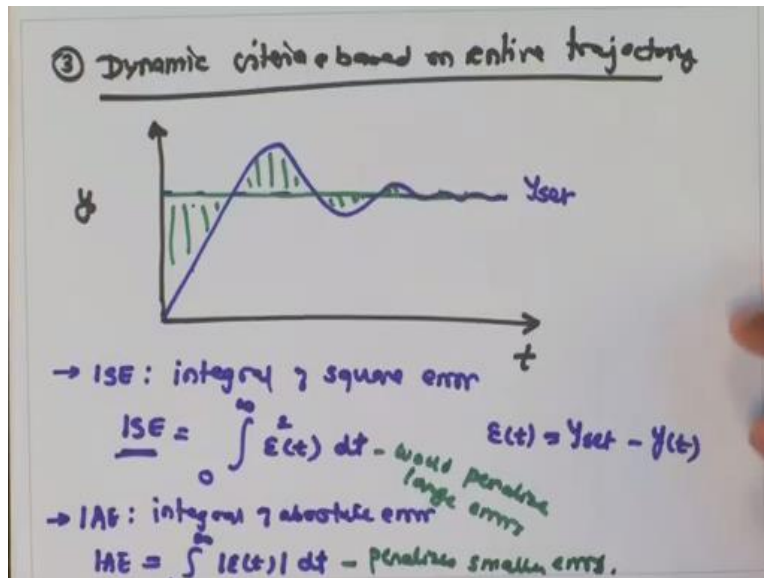 ③ Dynamic criteria based on entire trajectory
y
Yset
t
→ ISE: integral of square error
ISE = ∫₀^∞ ε²(t) dt - would penalize large errors
ε(t) = Yset - Y(t)
→ IAE: integral of absolute error
IAE = ∫^∞ |ε(t)| dt - penalizes smaller errors.